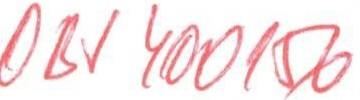 OBV 400150